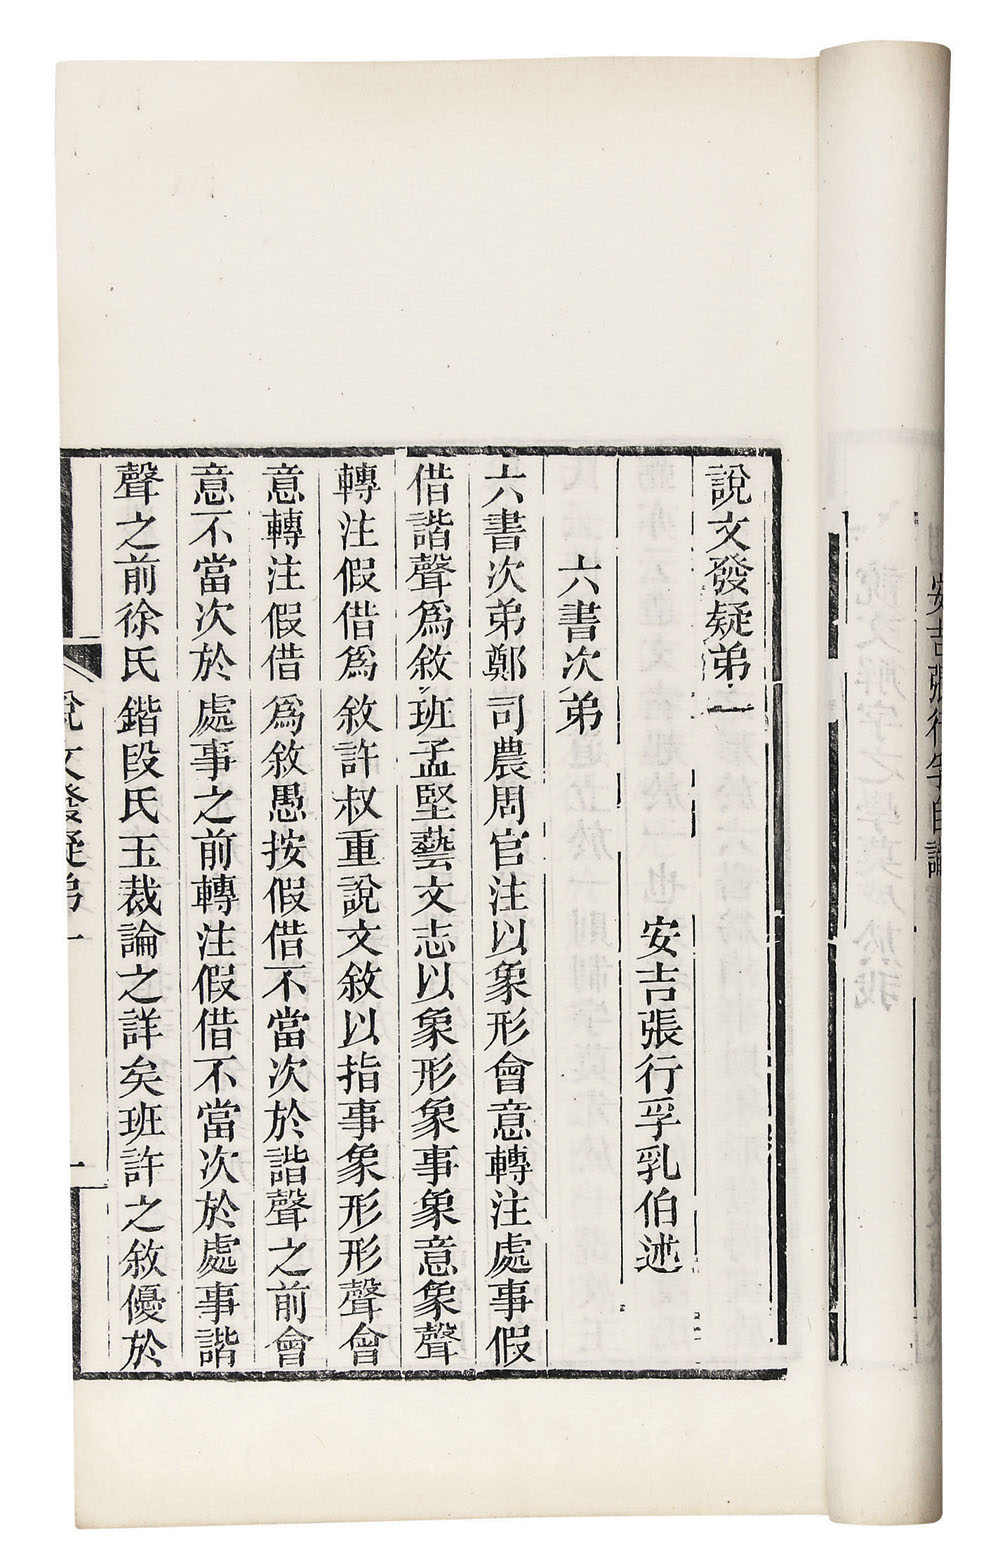 說文發疑弟一
安吉張行孚乳伯述
六書次弟
六書次弟鄭司農周官注以象形會意轉注處事假
借諧聲爲敘班孟堅藝文志以象形象事象意象聲
轉注假借爲敘許叔重說文敘以指事象形形聲會
意轉注假借爲敘愚按假借不當次於諧聲之前會
意不當次於處事之前轉注假借不當次於處事諧
聲之前徐氏鍇段氏玉裁論之詳矣班許之敘優於
說文發疑弟一
一
安吉張行孚自識